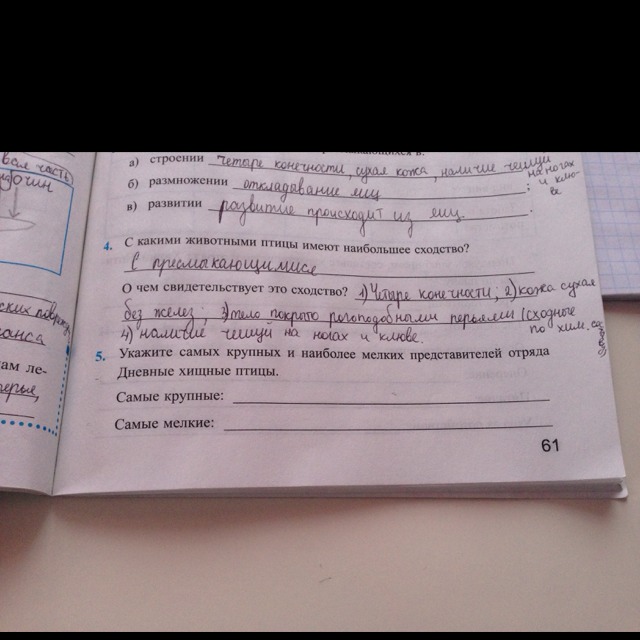 вая часть
а) строении четыре конечности, сухая кожа, наличие чешуи
на ногах
и клюве
б) размножении откладывание яиц ;
в) развитии развитие происходит из яиц.
4. С какими животными птицы имеют наибольшее сходство?
с пресмыкающимися
О чем свидетельствует это сходство? 1) Четыре конечности; 2) кожа сухая
без желез; 3) тело покрыто рогоподобными перьями (сходные
по хим.
4) наличие чешуй на ногах и клюве.
5. Укажите самых крупных и наиболее мелких представителей отряда
Дневные хищные птицы.
Самые крупные:
Самые мелкие:
ам ле-
61